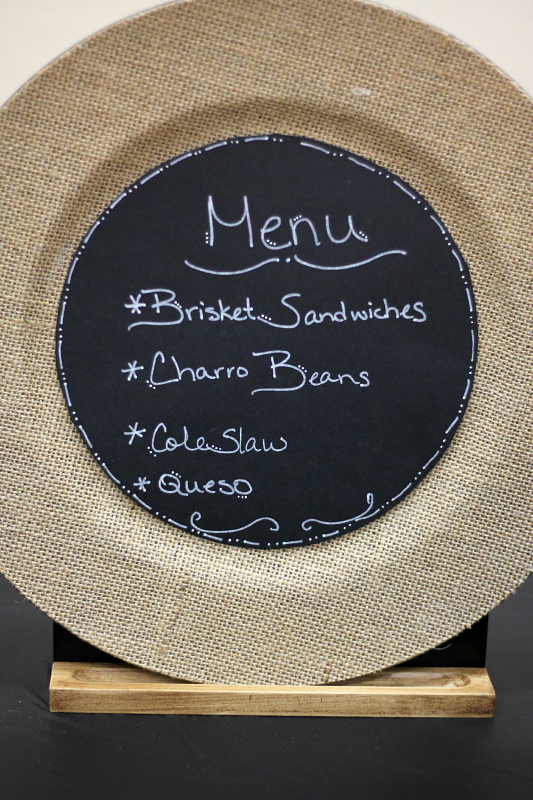 Menu
*Brisket Sandwiches
*Charro Beans
*Cole Slaw
*Queso